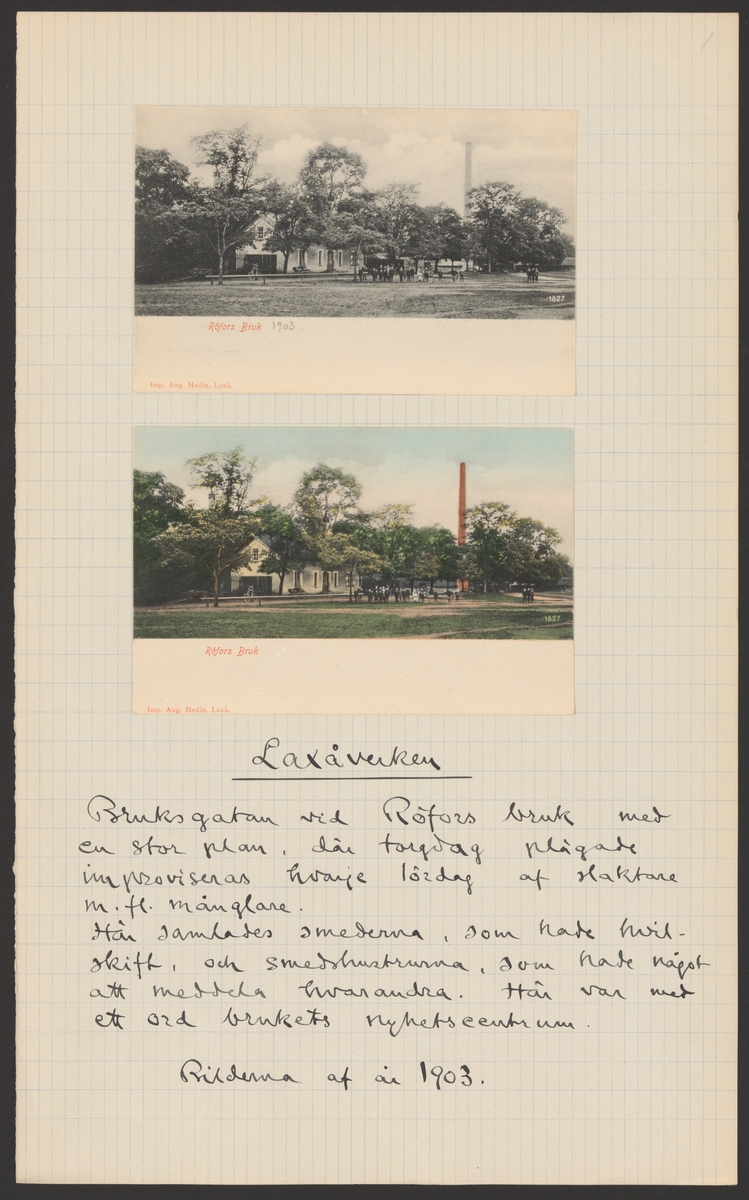 1827
Röfors Bruk 1903.
Imp. Aug. Hedin. Laxå.
1827
Röfors Bruk
Imp. Aug. Hedin. Laxå.
Laxåverken
Bruksgatan vid Röfors bruk med
en stor plan, där torgdag plägade
improviseras hvarje lördag af slaktare
m. fl. månglare.
Här samlades smederna, som hade hvil-
skift, och smedshustrurna, som hade något
att meddela hvarandra. Här var med
ett ord brukets nyhetscentrum.
Bilderna af år 1903.